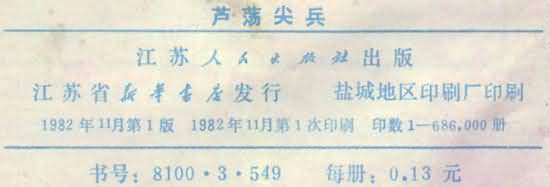 芦荡尖兵
江苏人民出版社出版
江苏省新华书店发行 盐城地区印刷厂印刷
1982年11月第1版 1982年11月第1次印刷 印数1—686,000册
书号：8100·3·549 每册：0.13元